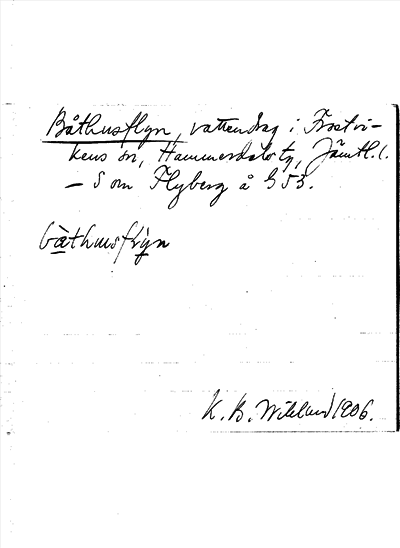 Båthusflyn, vattendrag i Frostvi-
kens sn, Hammerdals tg, Jämtl. l.
– S om Flyberg å G 53.
bàthusflyn
K. B. Wiklund 1906.